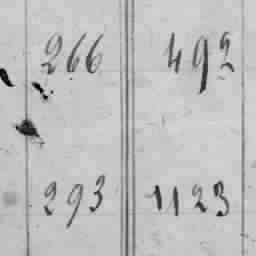 266 492
293 1123